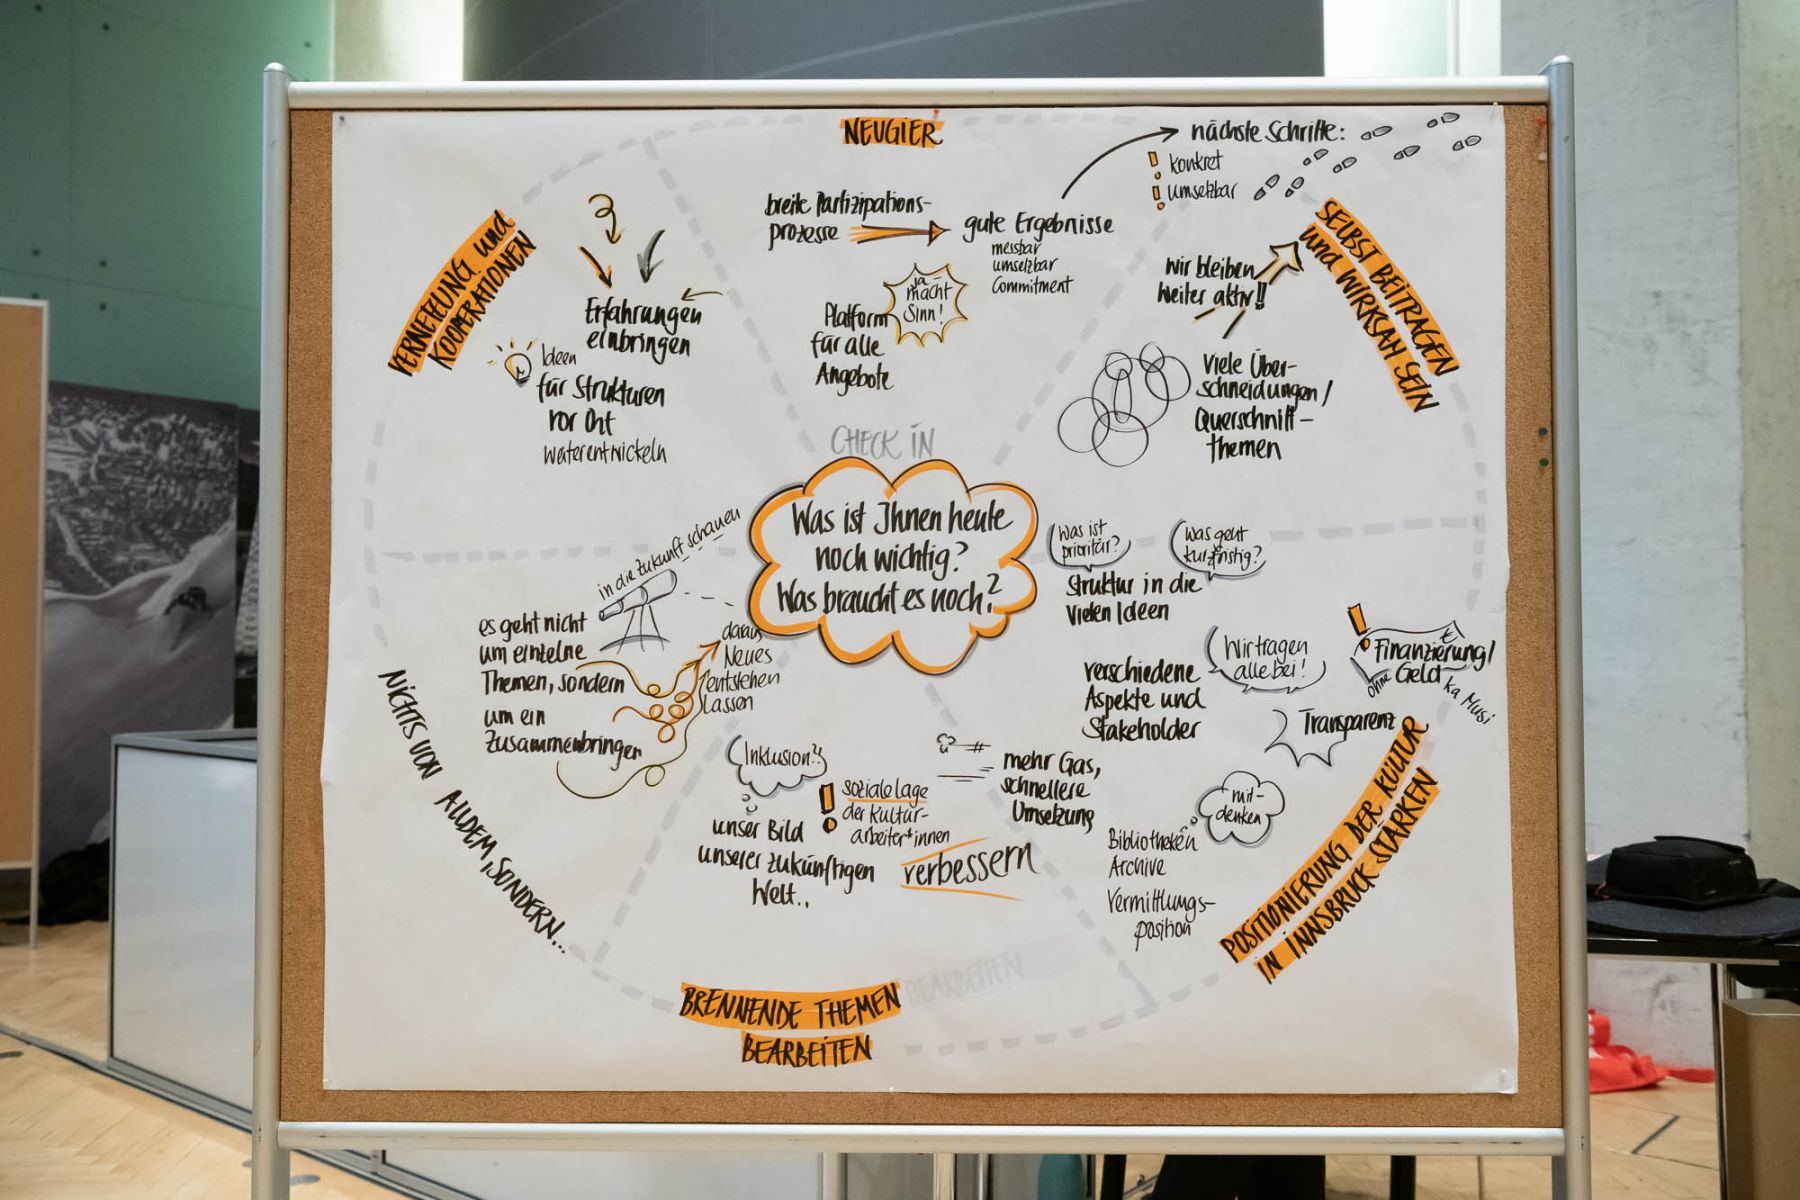 NEUGIER
nächste Schritte:
! konkret
! umsetzbar
breite Partizipations-
prozesse
gute Ergebnisse
messbar
umsetzbar
Commitment
ja
macht
Sinn!
Plattform
für alle
Angebote
VERNETZUNG und
KOOPERATIONEN
Erfahrungen
einbringen
Ideen
für Strukturen
vor Ort
weiterentwickeln
SELBST BEITRAGEN
und WIRKSAM SEIN
Wir bleiben
weiter aktiv!!
Viele Über-
schneidungen/
Querschnitt-
themen
CHECK IN
Was ist Ihnen heute
noch wichtig?
Was braucht es noch?
in die Zukunft schauen
es geht nicht
um einzelne
Themen, sondern
um ein
Zusammenbringen
daraus
Neues
entstehen
lassen
NICHTS VON ALLDEM, SONDERN...
Was ist
prioritär?
was geht
kurzfristig?
Struktur in die
vielen Ideen
verschiedene
Aspekte und
Stakeholder
Wir tragen
alle bei!
! €
Finanzierung/
Geld
ohne ka Musi
Transparenz
mehr Gas,
schnellere
Umsetzung
mit-
denken
Bibliotheken
Archive
Vermittlungs-
position
POSITIONIERUNG DER KULTUR
IN INNSBRUCK STÄRKEN
Inklusion?!
unser Bild
unserer zukünftigen
Welt..
! soziale Lage
der Kultur-
arbeiter*innen
verbessern
BRENNENDE THEMEN
BEARBEITEN
BEARBEITEN